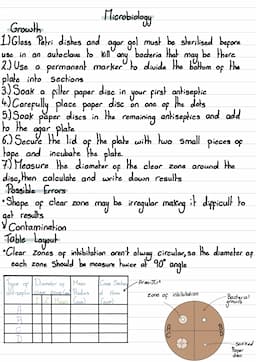 Microbiology
Growth
1.) Glass Petri dishes and agar gel must be sterilised before
use in an autoclave to kill any bacteria that may be there
2.) Use a permanent marker to divide the bottom of the
plate into sections
3.) Soak a filter paper disc in your first antiseptic
4.) Carefully place paper disc on one of the dots
5.) Soak paper discs in the remaining antiseptics and add
to the agar plate
6.) Secure the lid of the plate with two small pieces of
tape and incubate the plate.
7.) Measure the diameter of the clear zone around the
disc, then calculate and write down results
Possible Errors
• Shape of clear zone may be irregular making it difficult to
get results
Contamination
Table Layout
• Clear zones of inhibilation aren't alway circular, so the diameter of
each zone should be measured twice at 90° angle
Type of
antiseptic
Diameter of
Mean
Mean
A
B
C
D
zone of inhibilation
Bacterial
growth
Soaked
Paper
disc